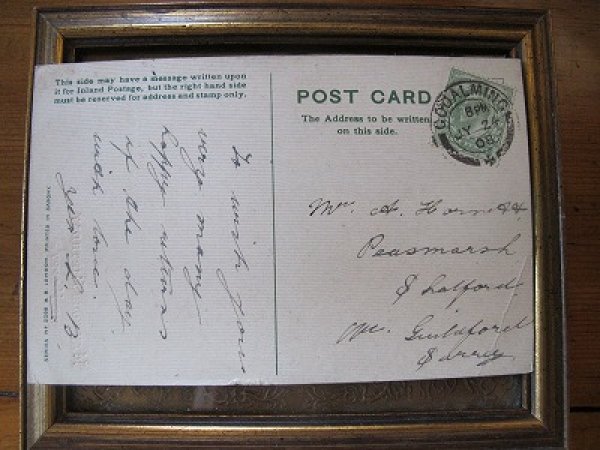 This side may have a message written upon
it for Inland Postage, but the right hand side
must be reserved for address and stamp only.
POST CARD
The Address to be written
on this side.
GODALMING
8 PM
JY 24
08
to wish you
very many
happy returns
of the day
with love.
Mr A. Horne
Peasmarsh
Shalford
Nr. Guildford
Surrey